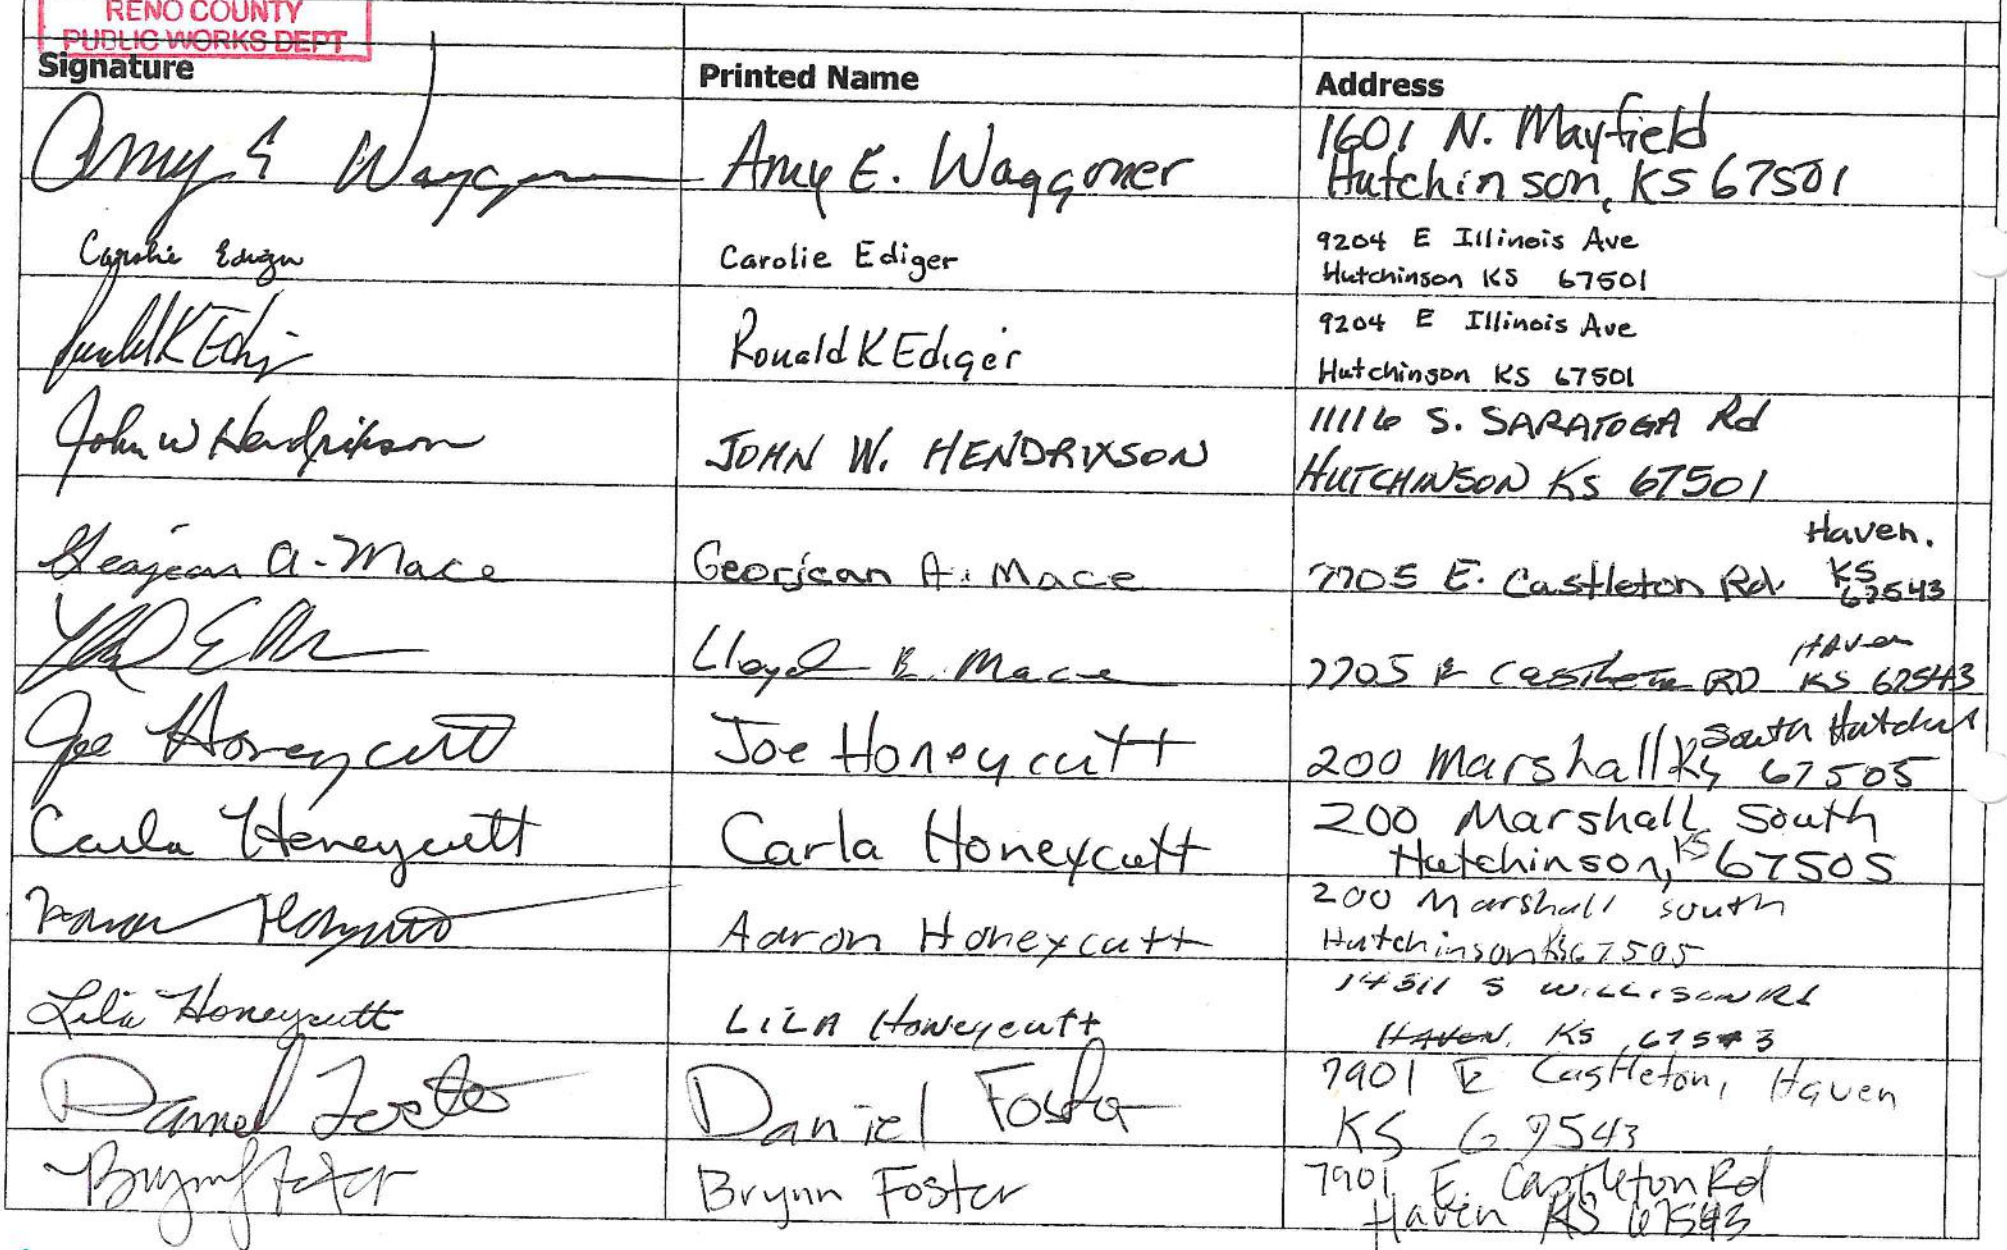 RENO COUNTY
PUBLIC WORKS DEPT
Signature Printed Name Address
Amy E Waggoner Amy E. Waggoner 1601 N. Mayfield
Hutchinson, KS 67501
Carolie Ediger Carolie Ediger 9204 E Illinois Ave
Hutchinson KS 67501
Ronald K Ediger Ronald K Ediger 9204 E Illinois Ave
Hutchinson KS 67501
John W Hendrixson JOHN W. HENDRIXSON 11116 S. SARATOGA Rd
HUTCHINSON KS 67501
Georjean A. Mace Georjean A. Mace 7705 E. Castleton Rd. Haven.
KS
67543
Lloyd E. Mace 7705 E Castleton RD HAven
KS 67543
Joe Honeycutt Joe Honeycutt 200 Marshall South Hutchinson
KS 67505
Carla Honeycutt Carla Honeycutt 200 Marshall South
Hutchinson, KS 67505
Aaron Honeycutt Aaron Honeycutt 200 Marshall South
Hutchinson KS 67505
Lila Honeycutt LiLA Honeycutt 14311 S WILLISON Rd
HAVEN, KS, 67543
Daniel Foster Daniel Foster 7901 E Castleton, Haven
KS 67543
Brynn Foster Brynn Foster 7901 E. Castleton Rd
Haven KS 67543